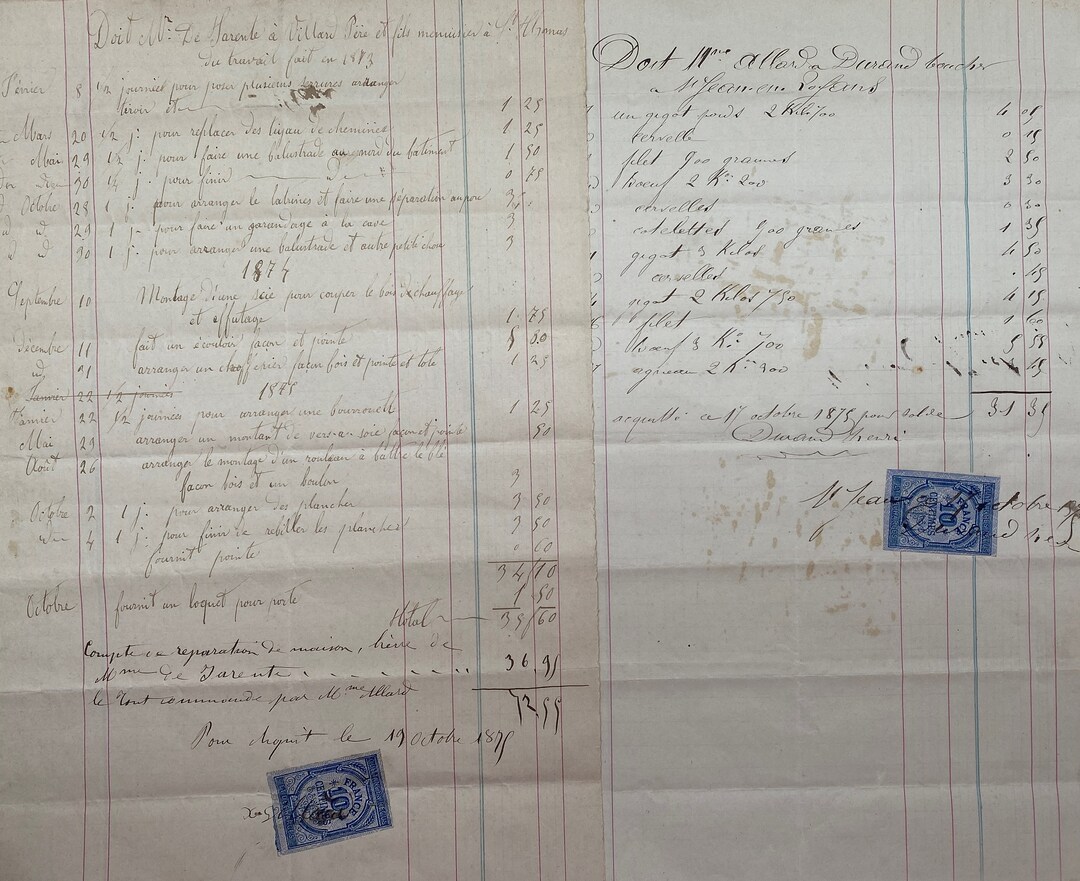 Doit Mr De Tarente à Villard Père et fils menuisier à St Thomas
du travail fait en 1873
Février 8 1/2 journées pour poser plusieurs serrures arranger
tiroir et 1 25
Mars 20 1/2 j. pour replacer des tuyau de cheminées 1 25
Mai 29 1/2 j. pour faire une balustrade au nord du batiment 1 50
30 1/2 j. pour finir 0 75
Octobre 28 1 j. pour arranger le latrines et faire une séparation au porc 3
d 29 1 j. pour faire un garandage à la cave 3
d d 30 1 j. pour arranger une balustrade et autre petite chose 3
1874
Septembre 10 Montage d'une scie pour couper le bois de chauffage
et affutage 1 75
Décembre 11 fait un écouloir façon et pointe 80
d 21 arranger un façon bois et pointe et tole 1 25
Janvier 22 1/2 journées 1875
Janvier 22 1/2 journées pour arranger une 1 25
Mai 29 arranger un montant de scie façon et pointe 50
Août 26 arranger le montage d'un rouleau à battre le blé
façon bois et un boulon 3
Octobre 2 1 j. pour arranger des plancher 3 50
4 1 j. pour finir de les planchers 3 50
fournit pointe 0 60
34 10
Octobre fournit un loquet pour porte 1 50
Total 35 60
Compte de reparation de maison, de
Mme de Tarente 36 95
le tout commandé par Mme Allard
72 55
Pour acquit le 19 octobre 1875
FRANCE
10
CENTIMES
Doit Mme Allard a Durand boucher
a St Jean en Royans
un gigot poids 2 Kil 700 4 05
cervelle 0 15
filet 900 grammes 2 50
boeuf 2 Ko 200 3 30
cervelles 0 30
cotelettes 900 grammes 1 35
gigot 3 Kilos 4 50
cervelles 45
gigot 2 Kilos 750 4 15
filet 1 60
boeuf 3 Ko 700 5 55
agneau 2 Ko 300 45
31 35
acquitté ce 17 octobre 1875 pour solde
Durand henri
St Jean octobre
FRANCE
10
CENTIMES